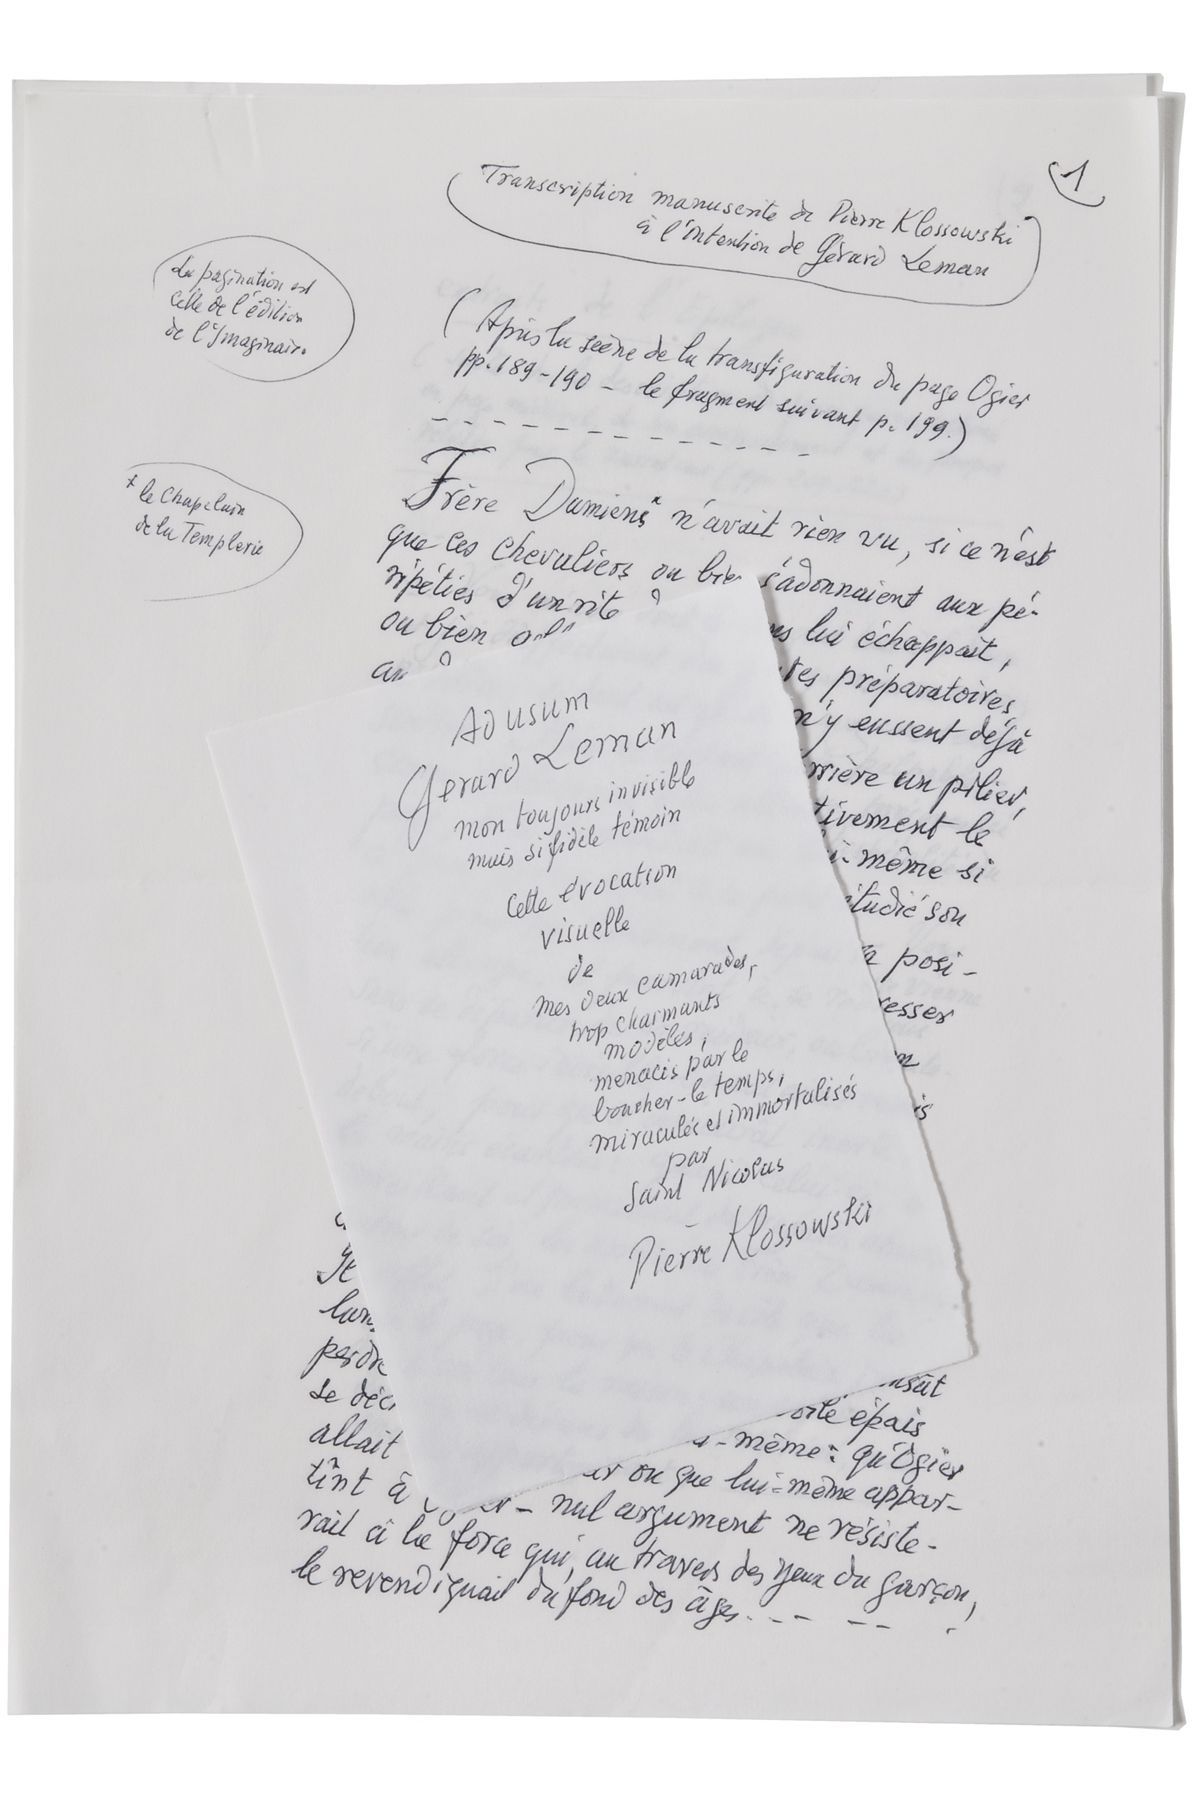 1
Transcription manuscrite de Pierre Klossowski
à l'intention de Gérard Leman
La pagination est
celle de l'édition
de l'Imaginaire
(Après la scène de la transfiguration du page Ogier
pp. 189-190 - le fragment suivant p. 199.)
* le Chapelain
de la Templerie
Frère Damiens* n'avait rien vu, si ce n'est
que ces chevaliers ou bien s'adonnaient aux pé-
ripéties d'un rite
lui échappait,
ou bien
préparatoires
n'y eussent déjà
un pilier,
tivement le
même si
étudié son
posi-
Ad usum
Gérard Leman
mon toujours invisible
mais si fidèle témoin
Cette évocation
visuelle
de
mes deux camarades,
trop charmants
modèles,
menacés par le
boucher-le temps,
miraculés et immortalisés
par
Saint Nicolas
Pierre Klossowski
épais
allait
même: qu'Ogier
tînt à
ou que lui-même appar-
nul argument ne résiste-
rait à la force qui, au travers des yeux du garçon,
le revendiquait du fond des âges